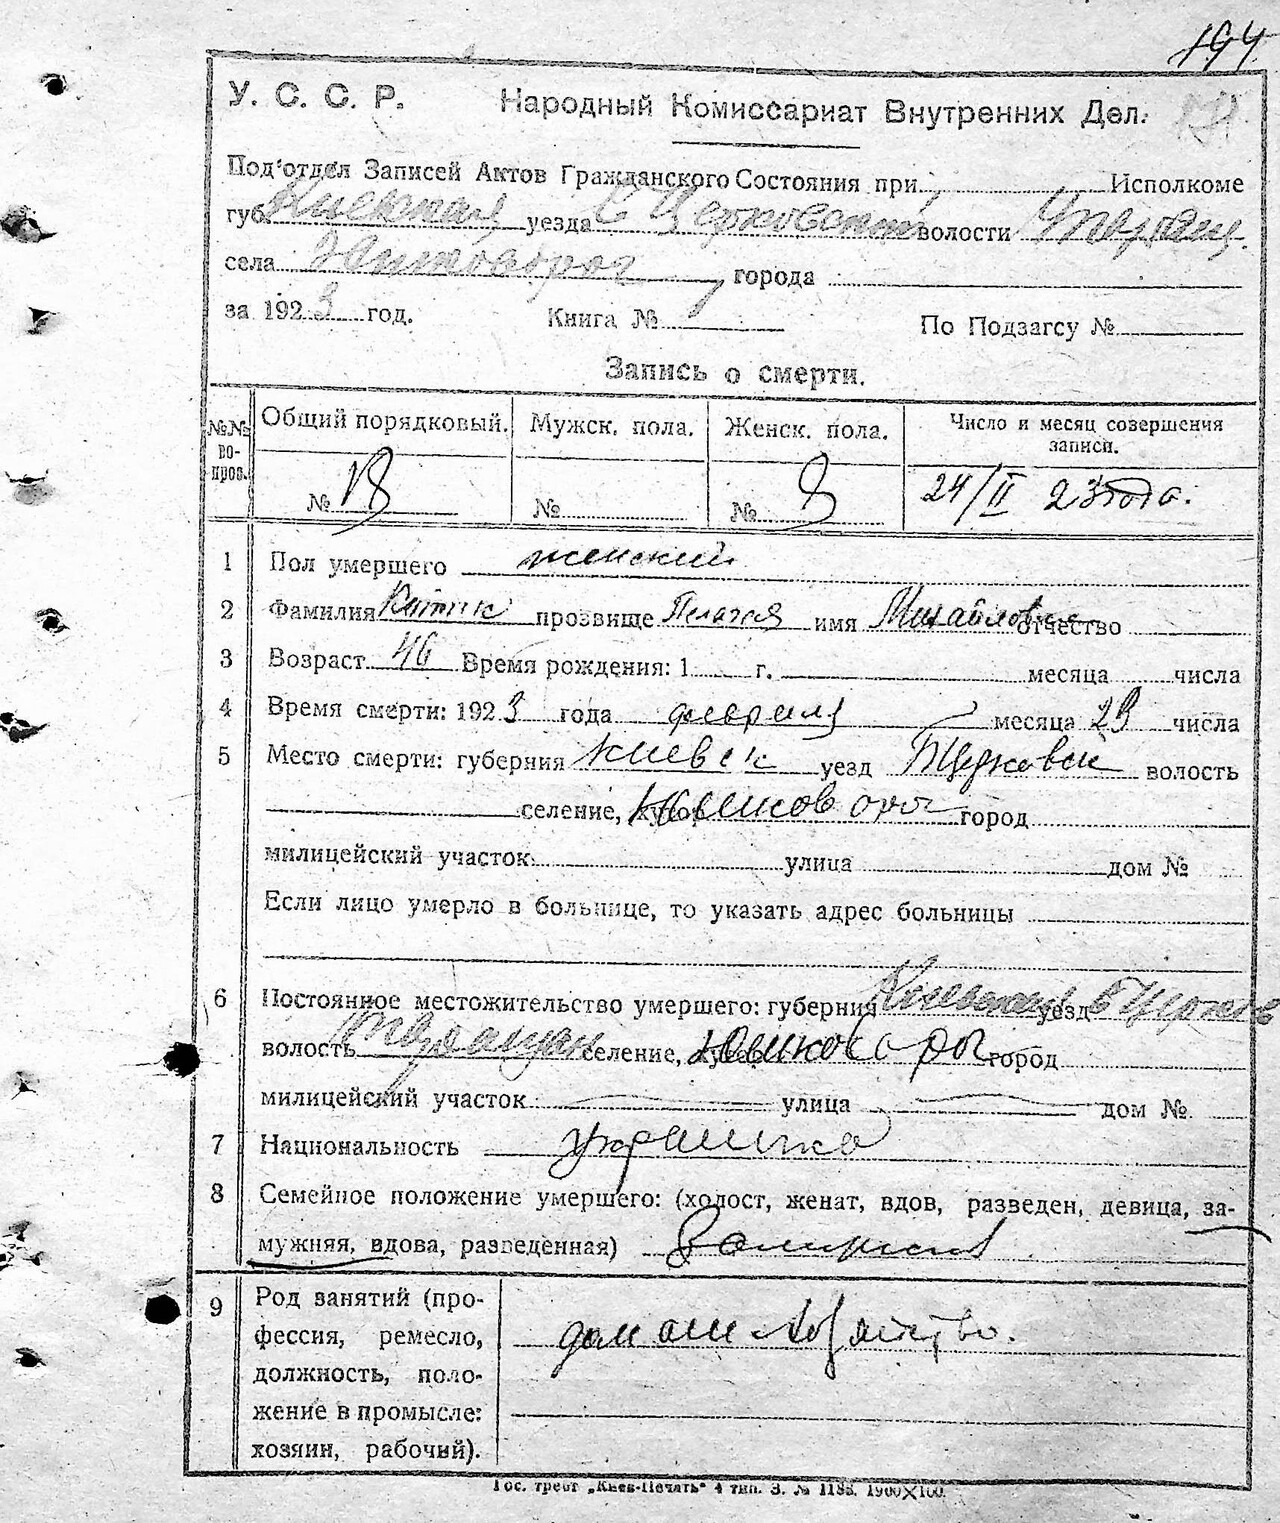 194
У. С. С. Р. Народный Комиссариат Внутренних Дел.
Под‘отдел Записей Актов Гражданского Состояния при Исполкоме
губ. Киевская уезда Б Церковский волости
села Юшков Рог города
за 1923 год. Книга № По Подзагсу №
Запись о смерти.
№№ вопров. Общий порядковый. Мужск. пола. Женск. пола. Число и месяц совершения записи.
№ № № 24/II 23 года.
1 Пол умершего женский
2 Фамилия прозвище Пелагея имя Михайловна отчество
3 Возраст 46 Время рождения: 1 г. месяца числа
4 Время смерти: 1923 года февраля месяца 23 числа
5 Место смерти: губерния Киевск уезд БЦерковск волость
селение, хутор Юшков Рог город
милицейский участок улица дом №
Если лицо умерло в больнице, то указать адрес больницы
6 Постоянное местожительство умершего: губерния Киевская уезд Б Церков
волость селение, хутор Юшков Рог город
милицейский участок улица дом №
7 Национальность украинка
8 Семейное положение умершего: (холост, женат, вдов, разведен, девица, за-
мужняя, вдова, разведенная) Замужняя
9 Род занятий (про-
фессия, ремесло, домашн хозяйство.
должность, поло-
жение в промысле:
хозяин, рабочий).
Гос. трест „Киев-Печать“ 4 тип. З. № 1183. 1900×100.